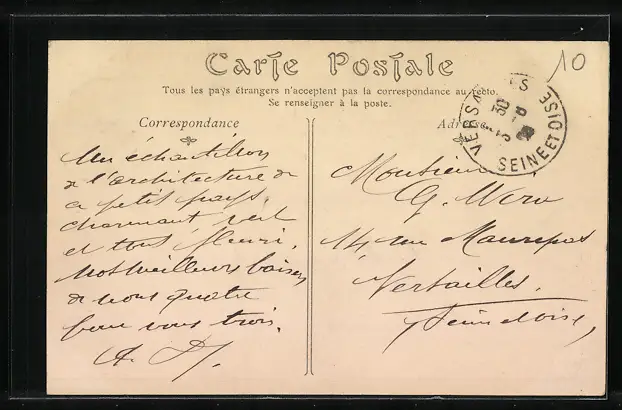 10
Carte Postale
Tous les pays étrangers n'acceptent pas la correspondance au recto.
Se renseigner à la poste.
Correspondance
Adresse
VERSAILLES
SEINE ET OISE
Un échantillon
de l'architecture de
ce petit pays,
charmant, vert
et tout fleuri.
Nos meilleurs baisers
de nous quatre
pour vous trois.
A. D.
Monsieur
G.
14 rue Maurepas
Versailles.
Seine et Oise,